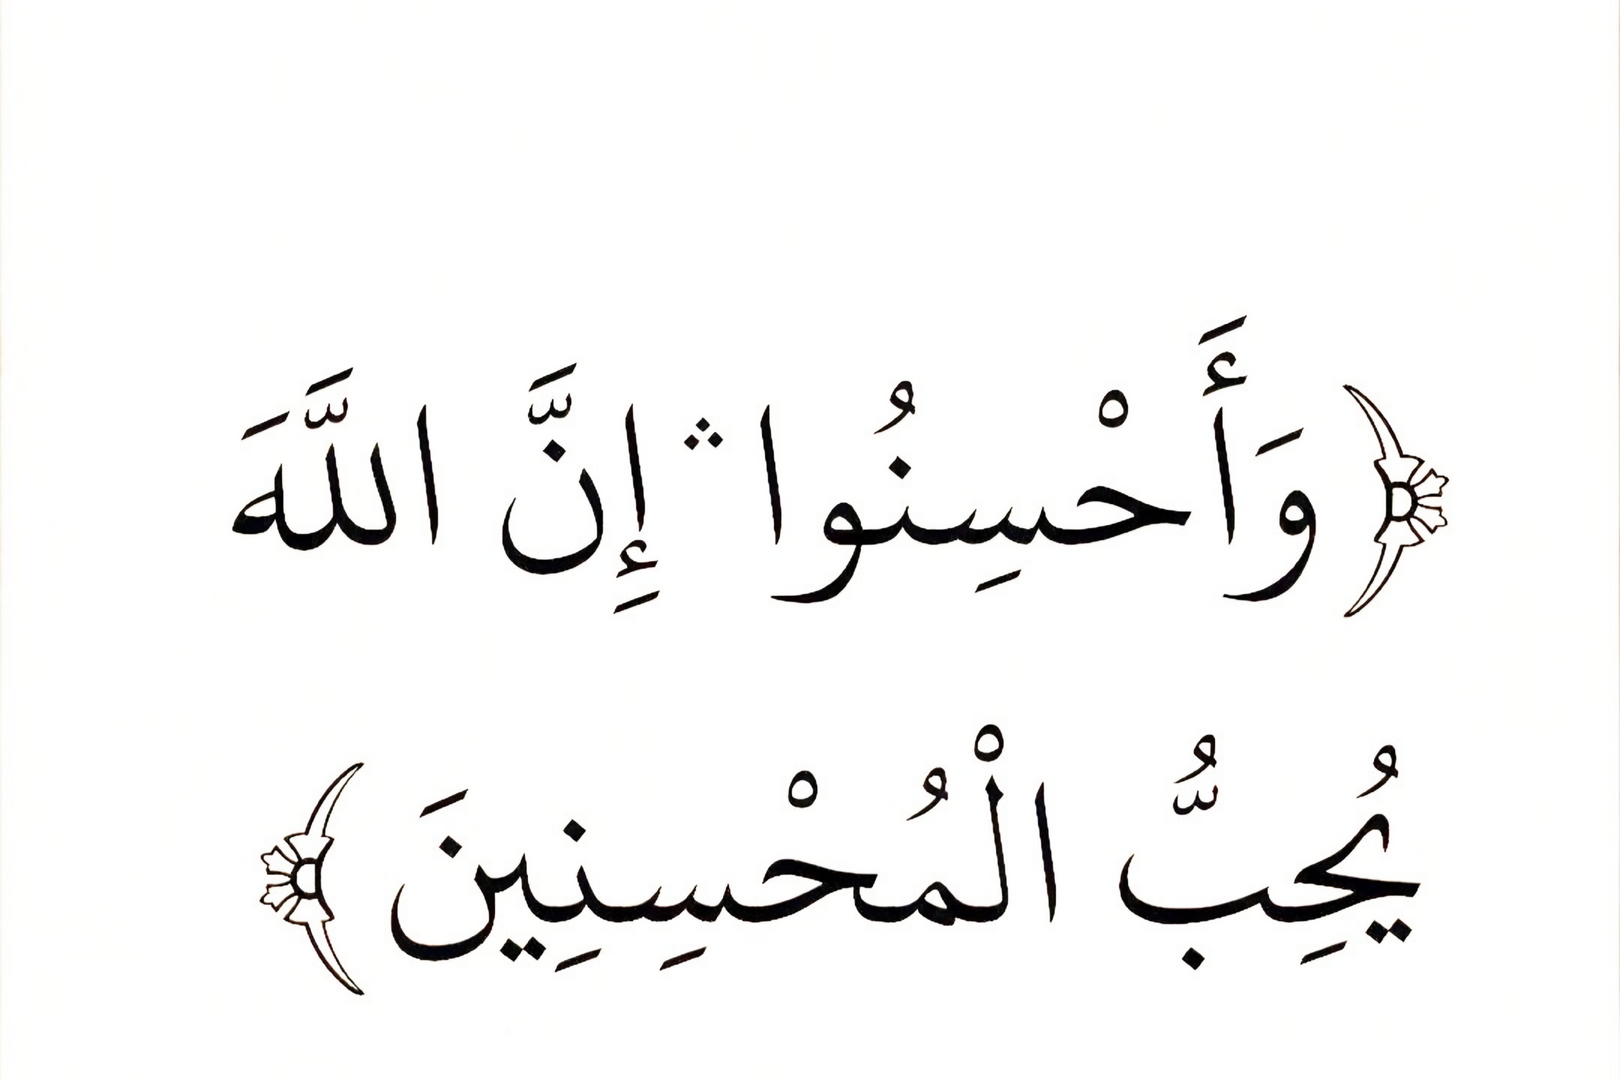 ﴿وَأَحْسِنُوا ۛ إِنَّ اللَّهَ
يُحِبُّ الْمُحْسِنِينَ﴾